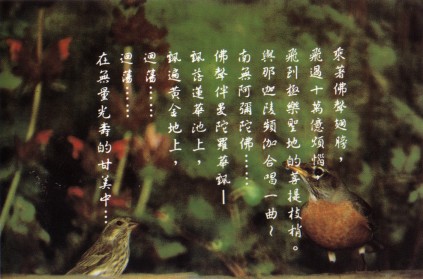 乘著佛聲翅膀，
飛過十萬億煩惱，
飛到極樂聖地的菩提枝梢。
與那迦陵頻伽合唱一曲～
南無阿彌陀佛……
佛聲伴曼陀羅華飄－
飄落蓮華池上，
飄遍黃金地上，
迴蕩……
迴蕩……
在無量光壽的甘美中…